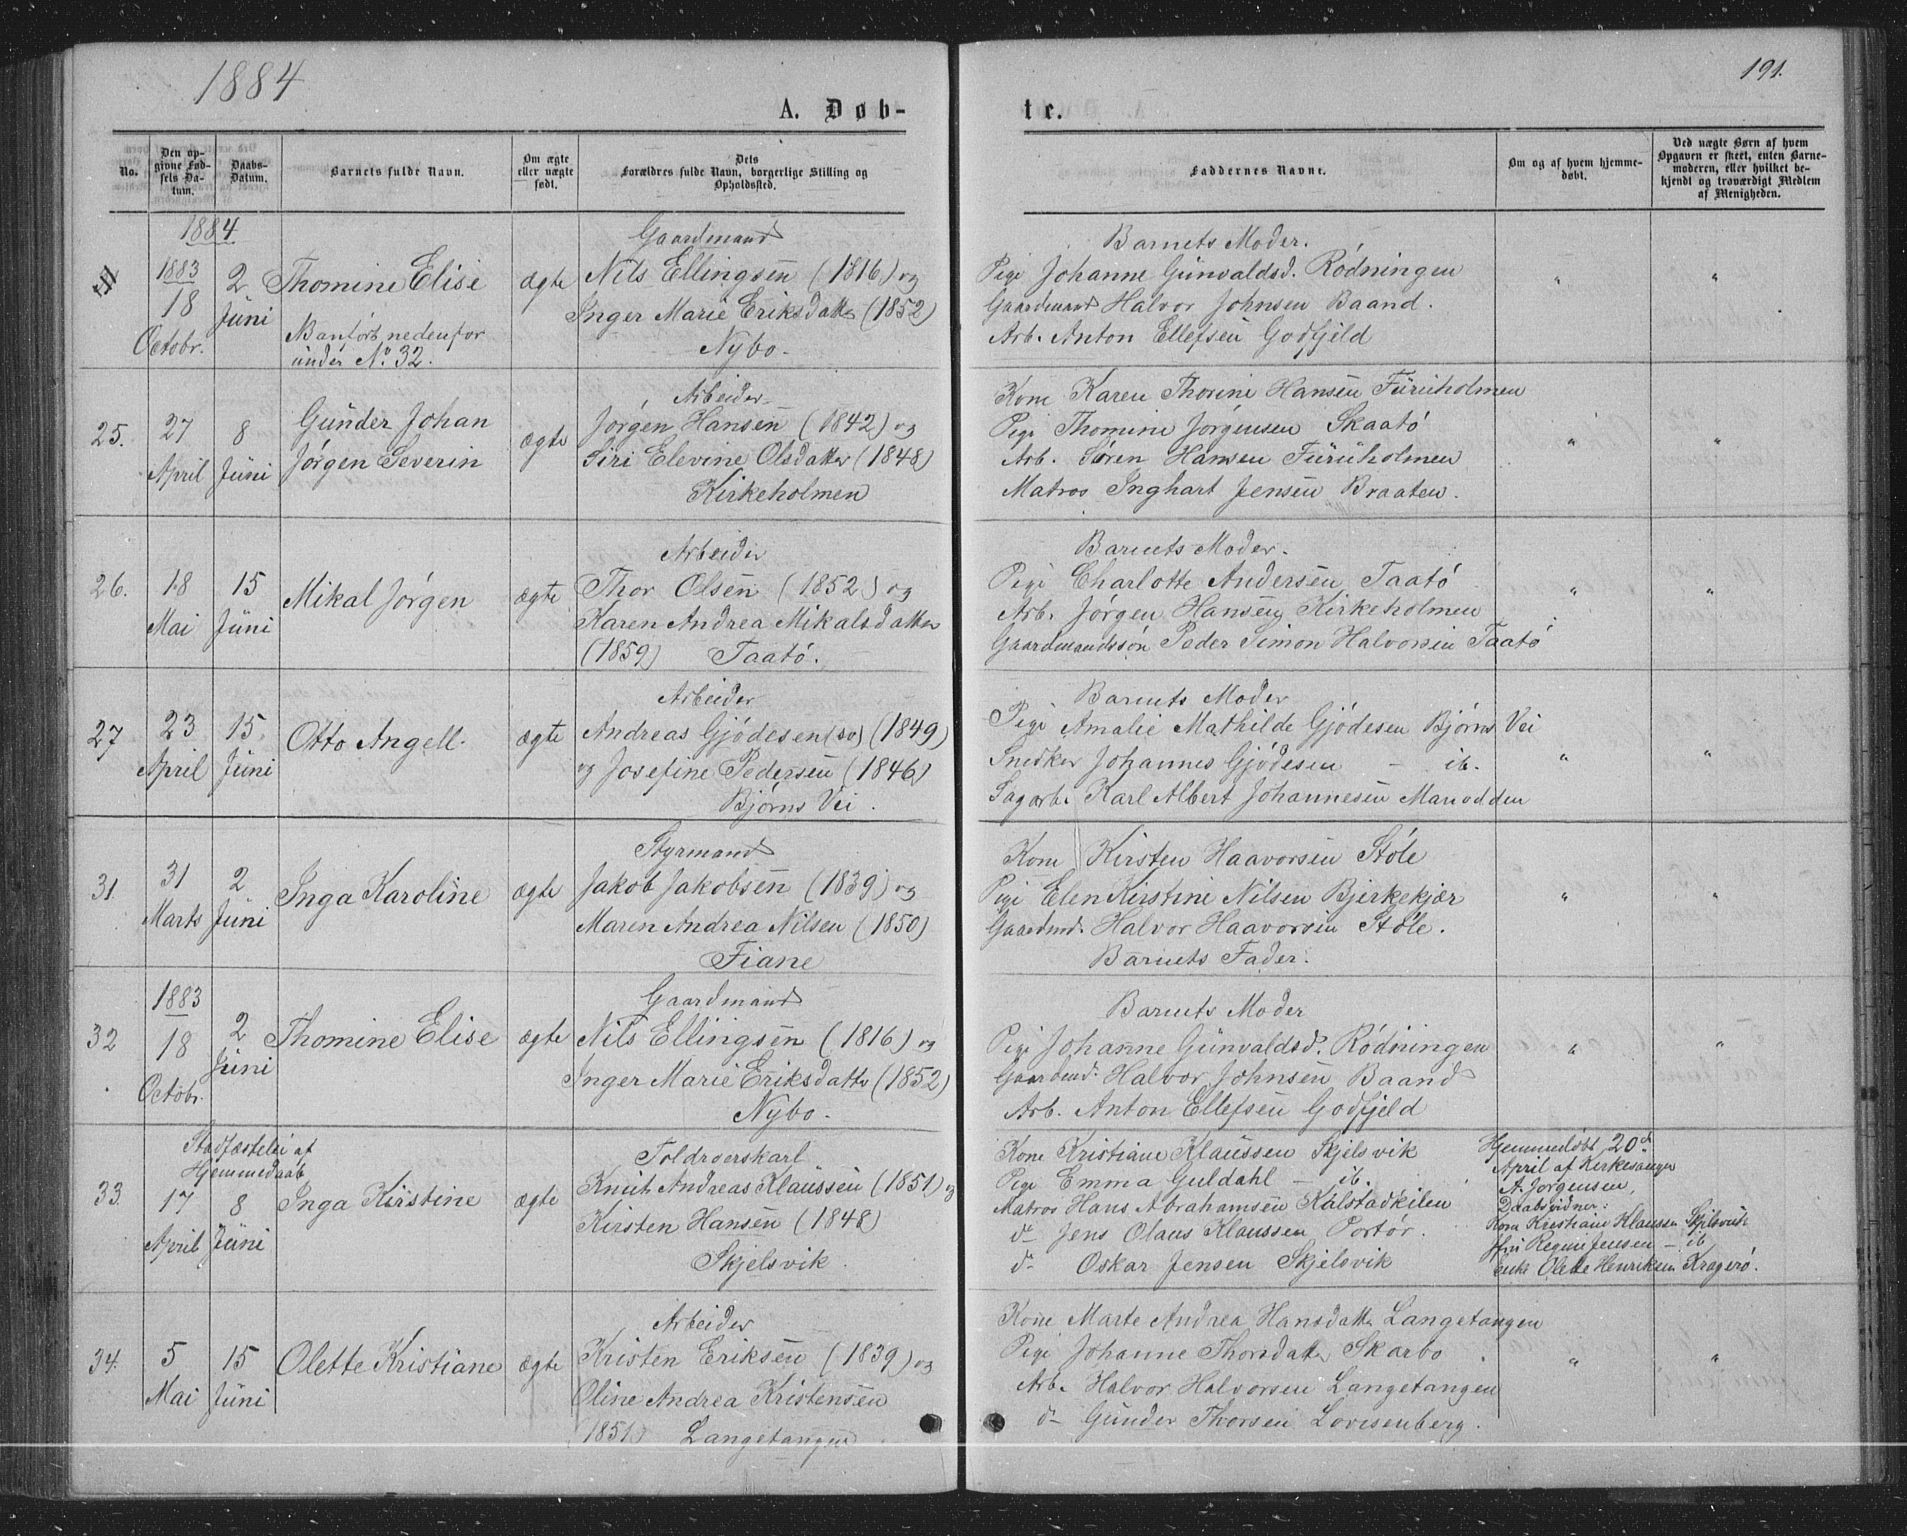 1884
191.
A. Døb-
te.
No.
Den op-
givne Fød-
sels Da-
tum.
Daabs-
Datum.
Barnets fulde Navn.
Om ægte
eller uægte
født.
Dets
Forældres fulde Navn, borgerlige Stilling og
Opholdssted.
Faddernes Navne.
Om og af hvem hjemme-
døbt.
Ved uægte Børn af hvem
Opgaven er skeet, enten Barne-
moderen, eller hvilket be-
kjendt og troværdigt Medlem
af Menigheden.
1884
1883
18
Octobr.
2
Juni
Thomine Elise
nedenfor
under No. 32.
ægte
Gaardmand
Nils Ellingsen (1816) og
Inger Marie Eriksdatter (1852)
Nybo.
Barnets Moder.
Pige Johanne Gunvaldsd. Rödningen
Gaardmand Halvor Johnsen Baand.
Arb. Anton Ellefsen Godfjeld
"
"
25.
27
April
8
Juni
Gunder Johan
Jörgen Severin
ægte
Arbeider
Jørgen Hansen (1842) og
Siri Elevine Olsdatter (1848)
Kirkeholmen
Kone Karen Thorine Hansen Furuholmen
Pige Thomine Jørgensen Skaatö
Arb. Søren Hansen Furuholmen
Matros Inghart Jensen Braaten.
"
"
26.
18
Mai
15
Juni
Mikal Jørgen
ægte
Arbeider
Thor Olsen (1852) og
Karen Andrea Mikalsdatter
(1859) Taatö.
Barnets Moder.
Pige Charlotte Andersen Taatö
Arb. Jørgen Hansen, Kirkeholmen
Gaardmandssön Peder Simon Halvorsen Taatö
"
"
27
23
April
15
Juni
Otto Angell.
ægte
Arbeider
Andreas Gjödesen (so) (1849)
og Josefine Pedersen (1846)
Bjørns Vei.
Barnets Moder
Pige Amalie Mathilde Gjödesen Bjørns Vei
Snedker Johannes Gjödesen — ib.
Sagarb. Karl Albert Johannesen Mariodden
"
"
31.
31
Marts
2
Juni
Inga Karoline
ægte
Styrmand
Jakob Jakobsen (1839) og
Maren Andrea Nilsen (1850)
Fiane
Kone Kirsten Haavorsen Støle
Pige Elen Kirstine Nilsen Bjerkekjær
Gaardmd. Halvor Haavorsen Støle.
Barnets Fader.
"
"
32
1883
18
Octobr.
2
Juni
Thomine Elise
ægte
Gaardmand
Nils Ellingsen (1816) og
Inger Marie Eriksdatter (1852)
Nybo.
Barnets Moder
Pige Johanne Gunvaldsd. Rödningen
Gaardmd. Halvor Johnsen Baand
Arb. Anton Ellefsen Godfjeld
"
"
33.
Stadfæstelse af
Hjemmedaab
17
April
8
Juni
Inga Kirstine
ægte
Toldroerskarl
Knut Andreas Klaussen (1851) og
Kirsten Hansen (1848)
Skjelsvik.
Kone Kristiane Klaussen Skjelsvik
Pige Emma Guldahl — ib.
Matros Hans Abrahamsen Kalstadkilen
d— Jens Olaus Klaussen Portör.
d— Oskar Jensen Skjelsvik
Hjemmedöbt 20de
April af Kirkesanger
A. Jörgensen,
Daabsvidner:
Kone Kristiane Klaussen Skjelsvik
Regine Jensen — ib
Enke Olette Henriksen Kragerö.
34.
5
Mai
15
Juni
Olette Kristiane
ægte
Arbeider
Kristen Eriksen (1839) og
Oline Andrea Kristensen
(1851) Langetangen
Kone Marte Andrea Hansdatter Langetangen
Pige Johanne Thorsdatter Skarbo
Arb. Halvor Halvorsen Langetangen
d— Gunder Thorsen Lovisenberg.
"
"